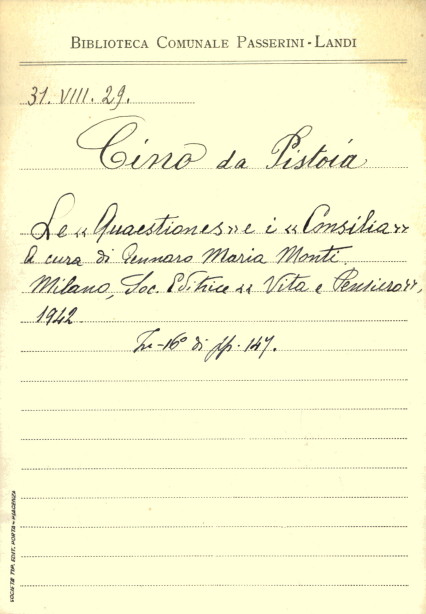 BIBLIOTECA COMUNALE PASSERINI-LANDI
31. VIII. 29.
Cino da Pistoia
Le «Quaestiones» e i «Consilia»
A cura di Gennaro Maria Monti.
Milano, Soc. Editrice «Vita e Pensiero»,
1942.
In-16° di pp. 147.
SOCIETÀ TIP. EDIT. PORTA - PIACENZA